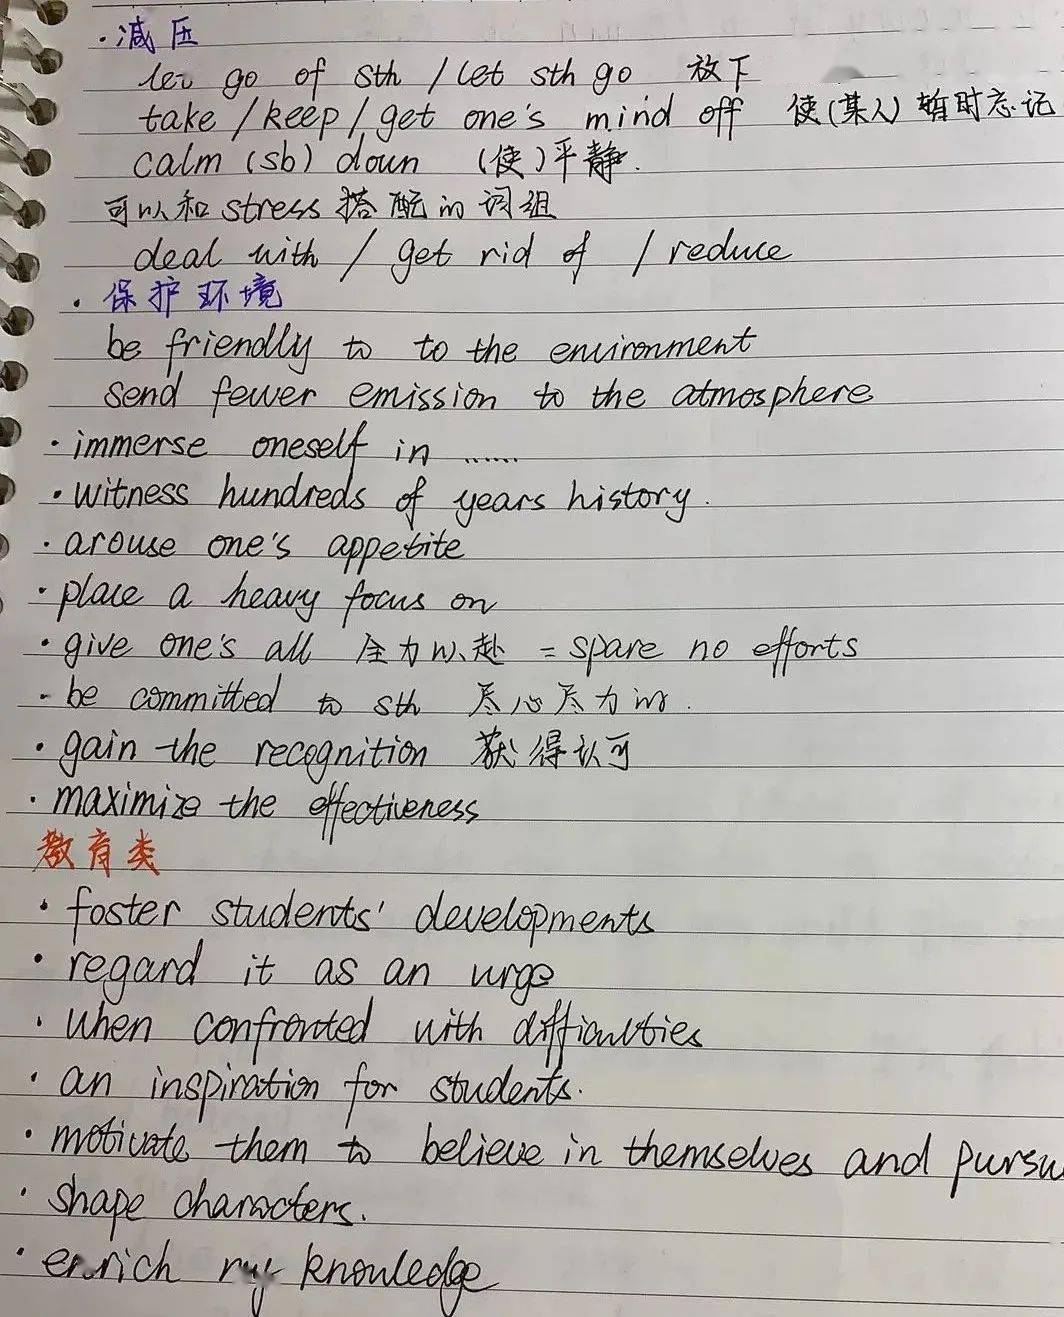 ·减压
let go of sth /let sth go 放下
take/keep/get one's mind off 使(某人)暂时忘记
calm (sb) down (使)平静.
可以和stress搭配的词组
deal with / get rid of / reduce
·保护环境
be friendly to to the environment
send fewer emission to the atmosphere
·immerse oneself in ......
·witness hundreds of years history.
·arouse one's appetite
·place a heavy focus on
·give one's all 全力以赴 = spare no efforts
·be committed to sth 尽心尽力的.
·gain the recognition 获得认可
·maximize the effectiveness
教育类
·foster students' developments
·regard it as an urge
·when confronted with difficulties
·an inspiration for students.
·motivate them to believe in themselves and pursu
·shape characters.
·enrich my knowledge